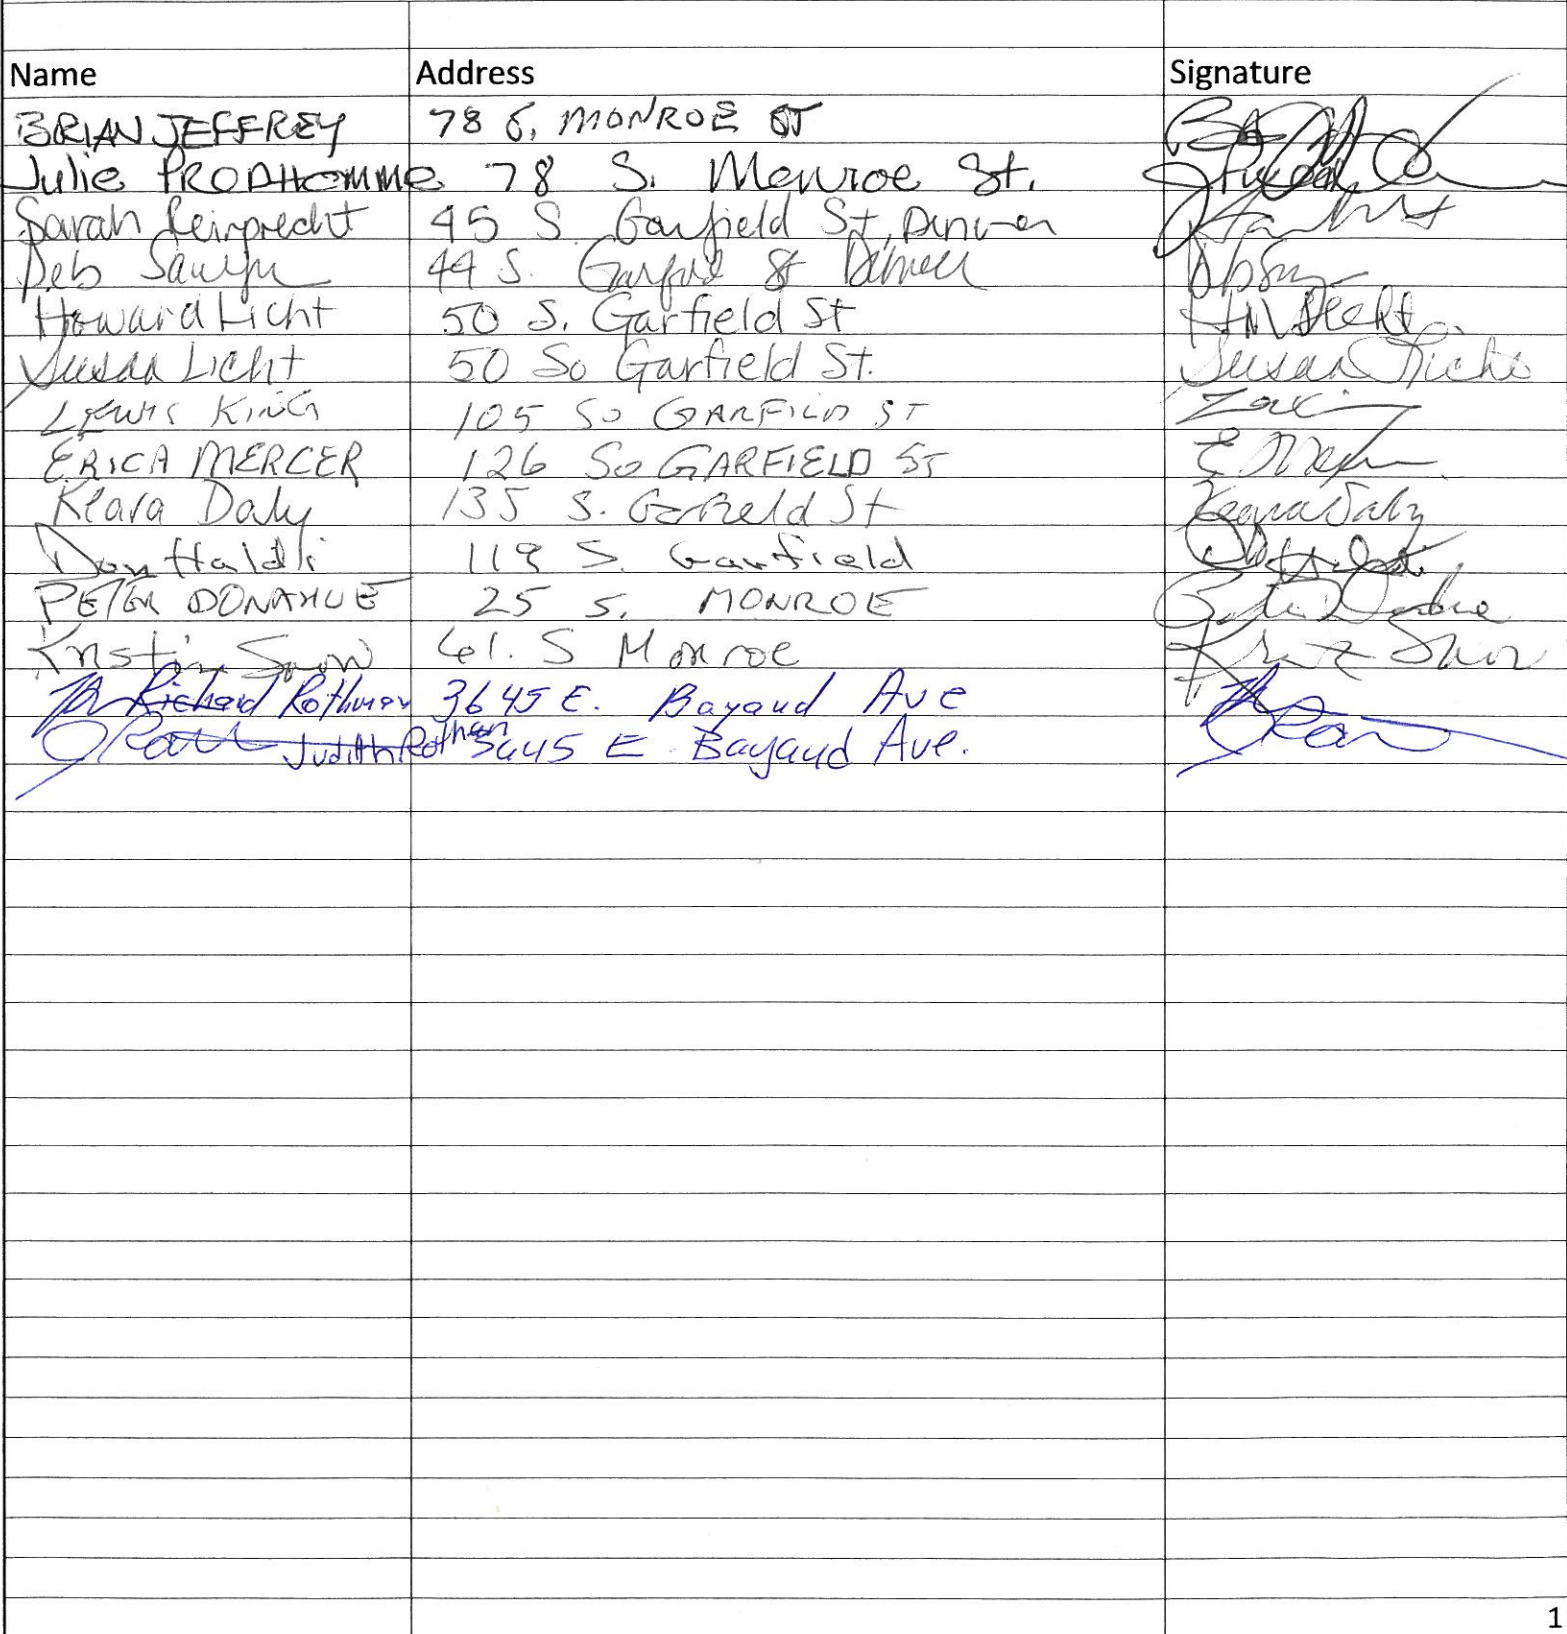 Name Address Signature
BRIAN JEFFREY 78 S. MONROE ST
Julie PRODHOMME 78 S. Monroe St.
Sarah Reinprecht 45 S. Garfield St, Denver
Deb Sawyer 44 S. Garfield St Denver
Howard Licht 50 S. Garfield St
Susan Licht 50 So Garfield St. Susan Licht
LEWIS KING 105 So GARFIELD ST
ERICA MERCER 126 So GARFIELD ST
Klara Daly 135 S. Garfield St Klara Daly
Don 119 S. Garfield
PETER DONAHUE 25 S. MONROE
Kristin Snow 61. S Monroe
Richard Rothman 3645 E. Bayaud Ave
Judith Rothman 3645 E. Bayaud Ave.
1